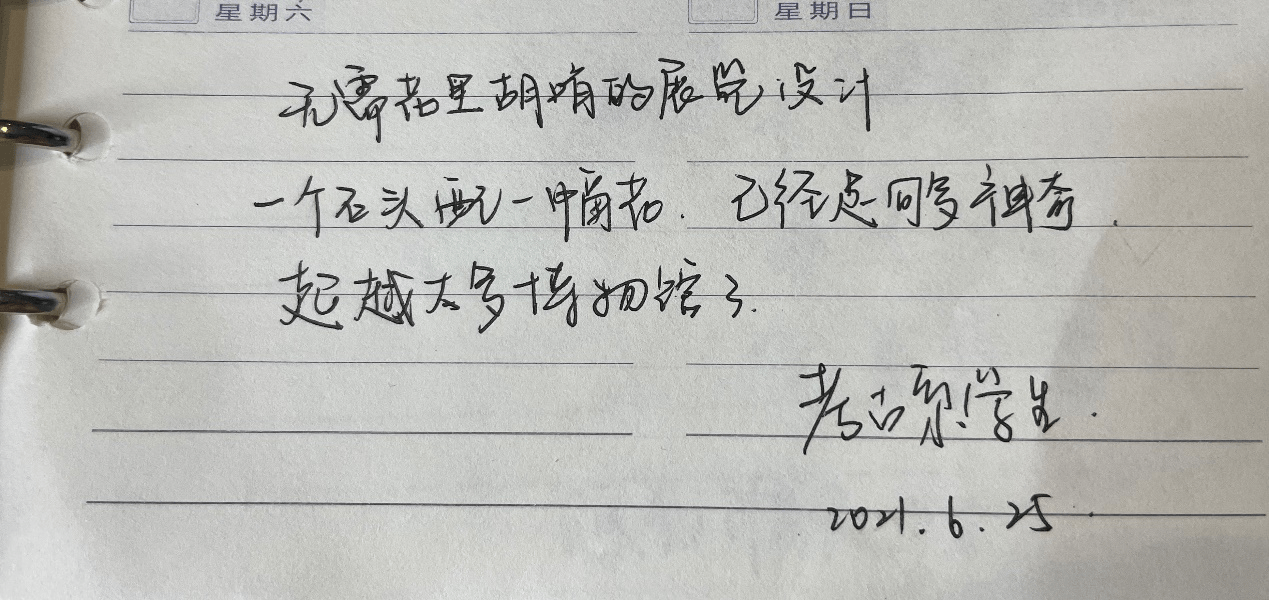 星期六 星期日
无需花里胡哨的展览设计
一个石头配一 已经足够神奇.
超越太多博物馆了.
考古系学生.
2021.6.25